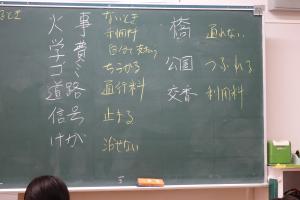 火事 ないとき
利用料
自分で支払う
学費
ゴミ ちらかる
道路 通行料
信号 止まる
けが 治せない
橋 通れない
公園 つぶれる
交番 利用料